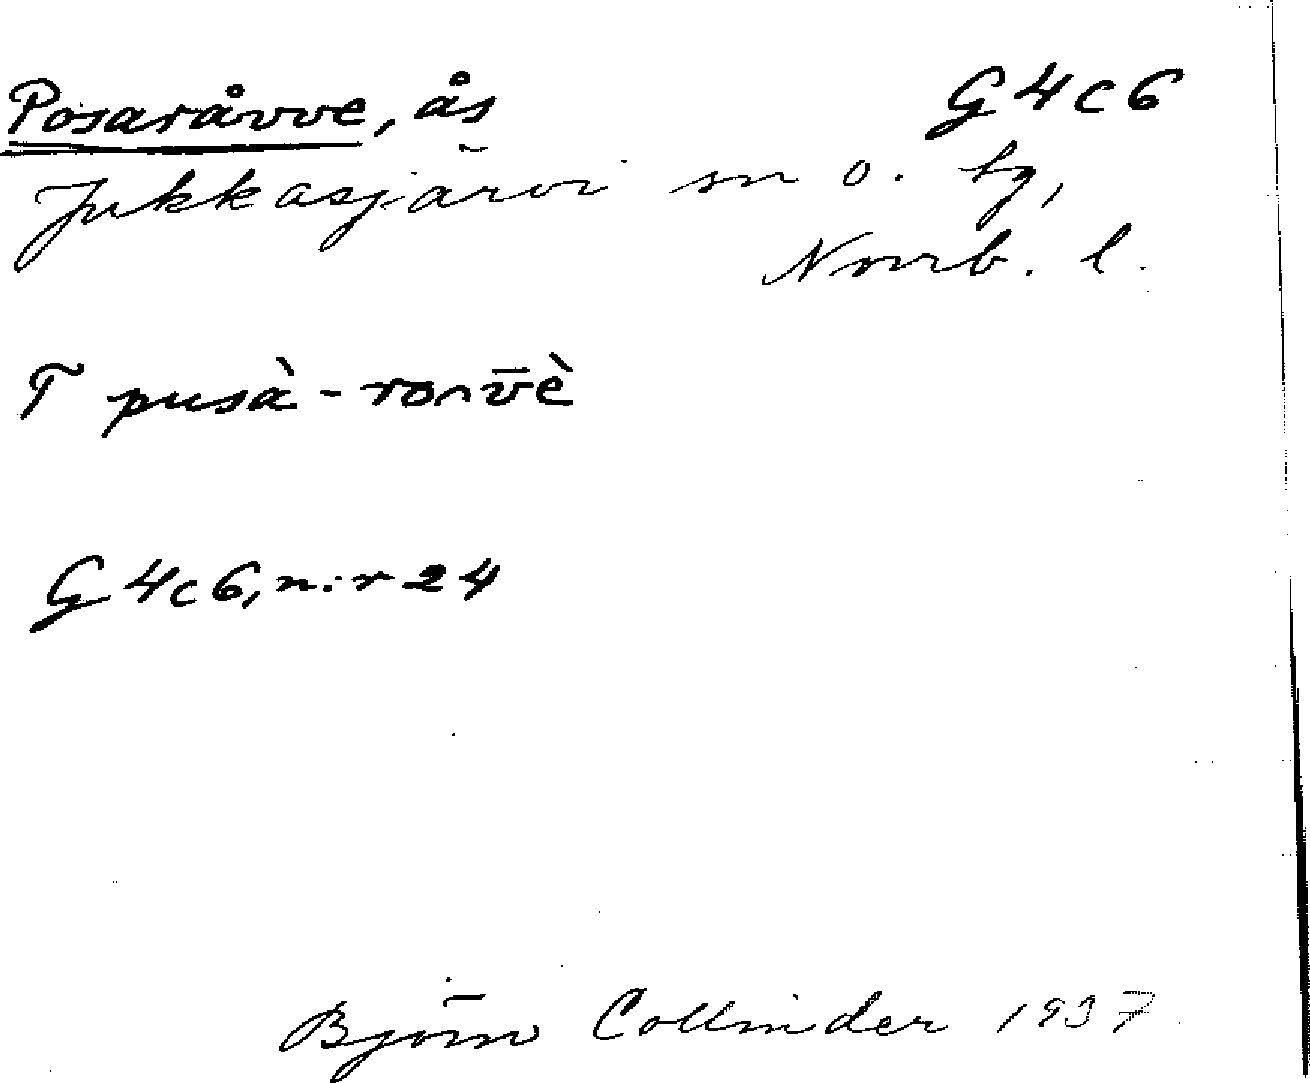 Posaråvve, ås G4c6
Jukkasjärvi sn o. tg,
Norrb. l.
T pusà-ron̄v̄è
G4c6, n:r 24
Björn Collinder 1937